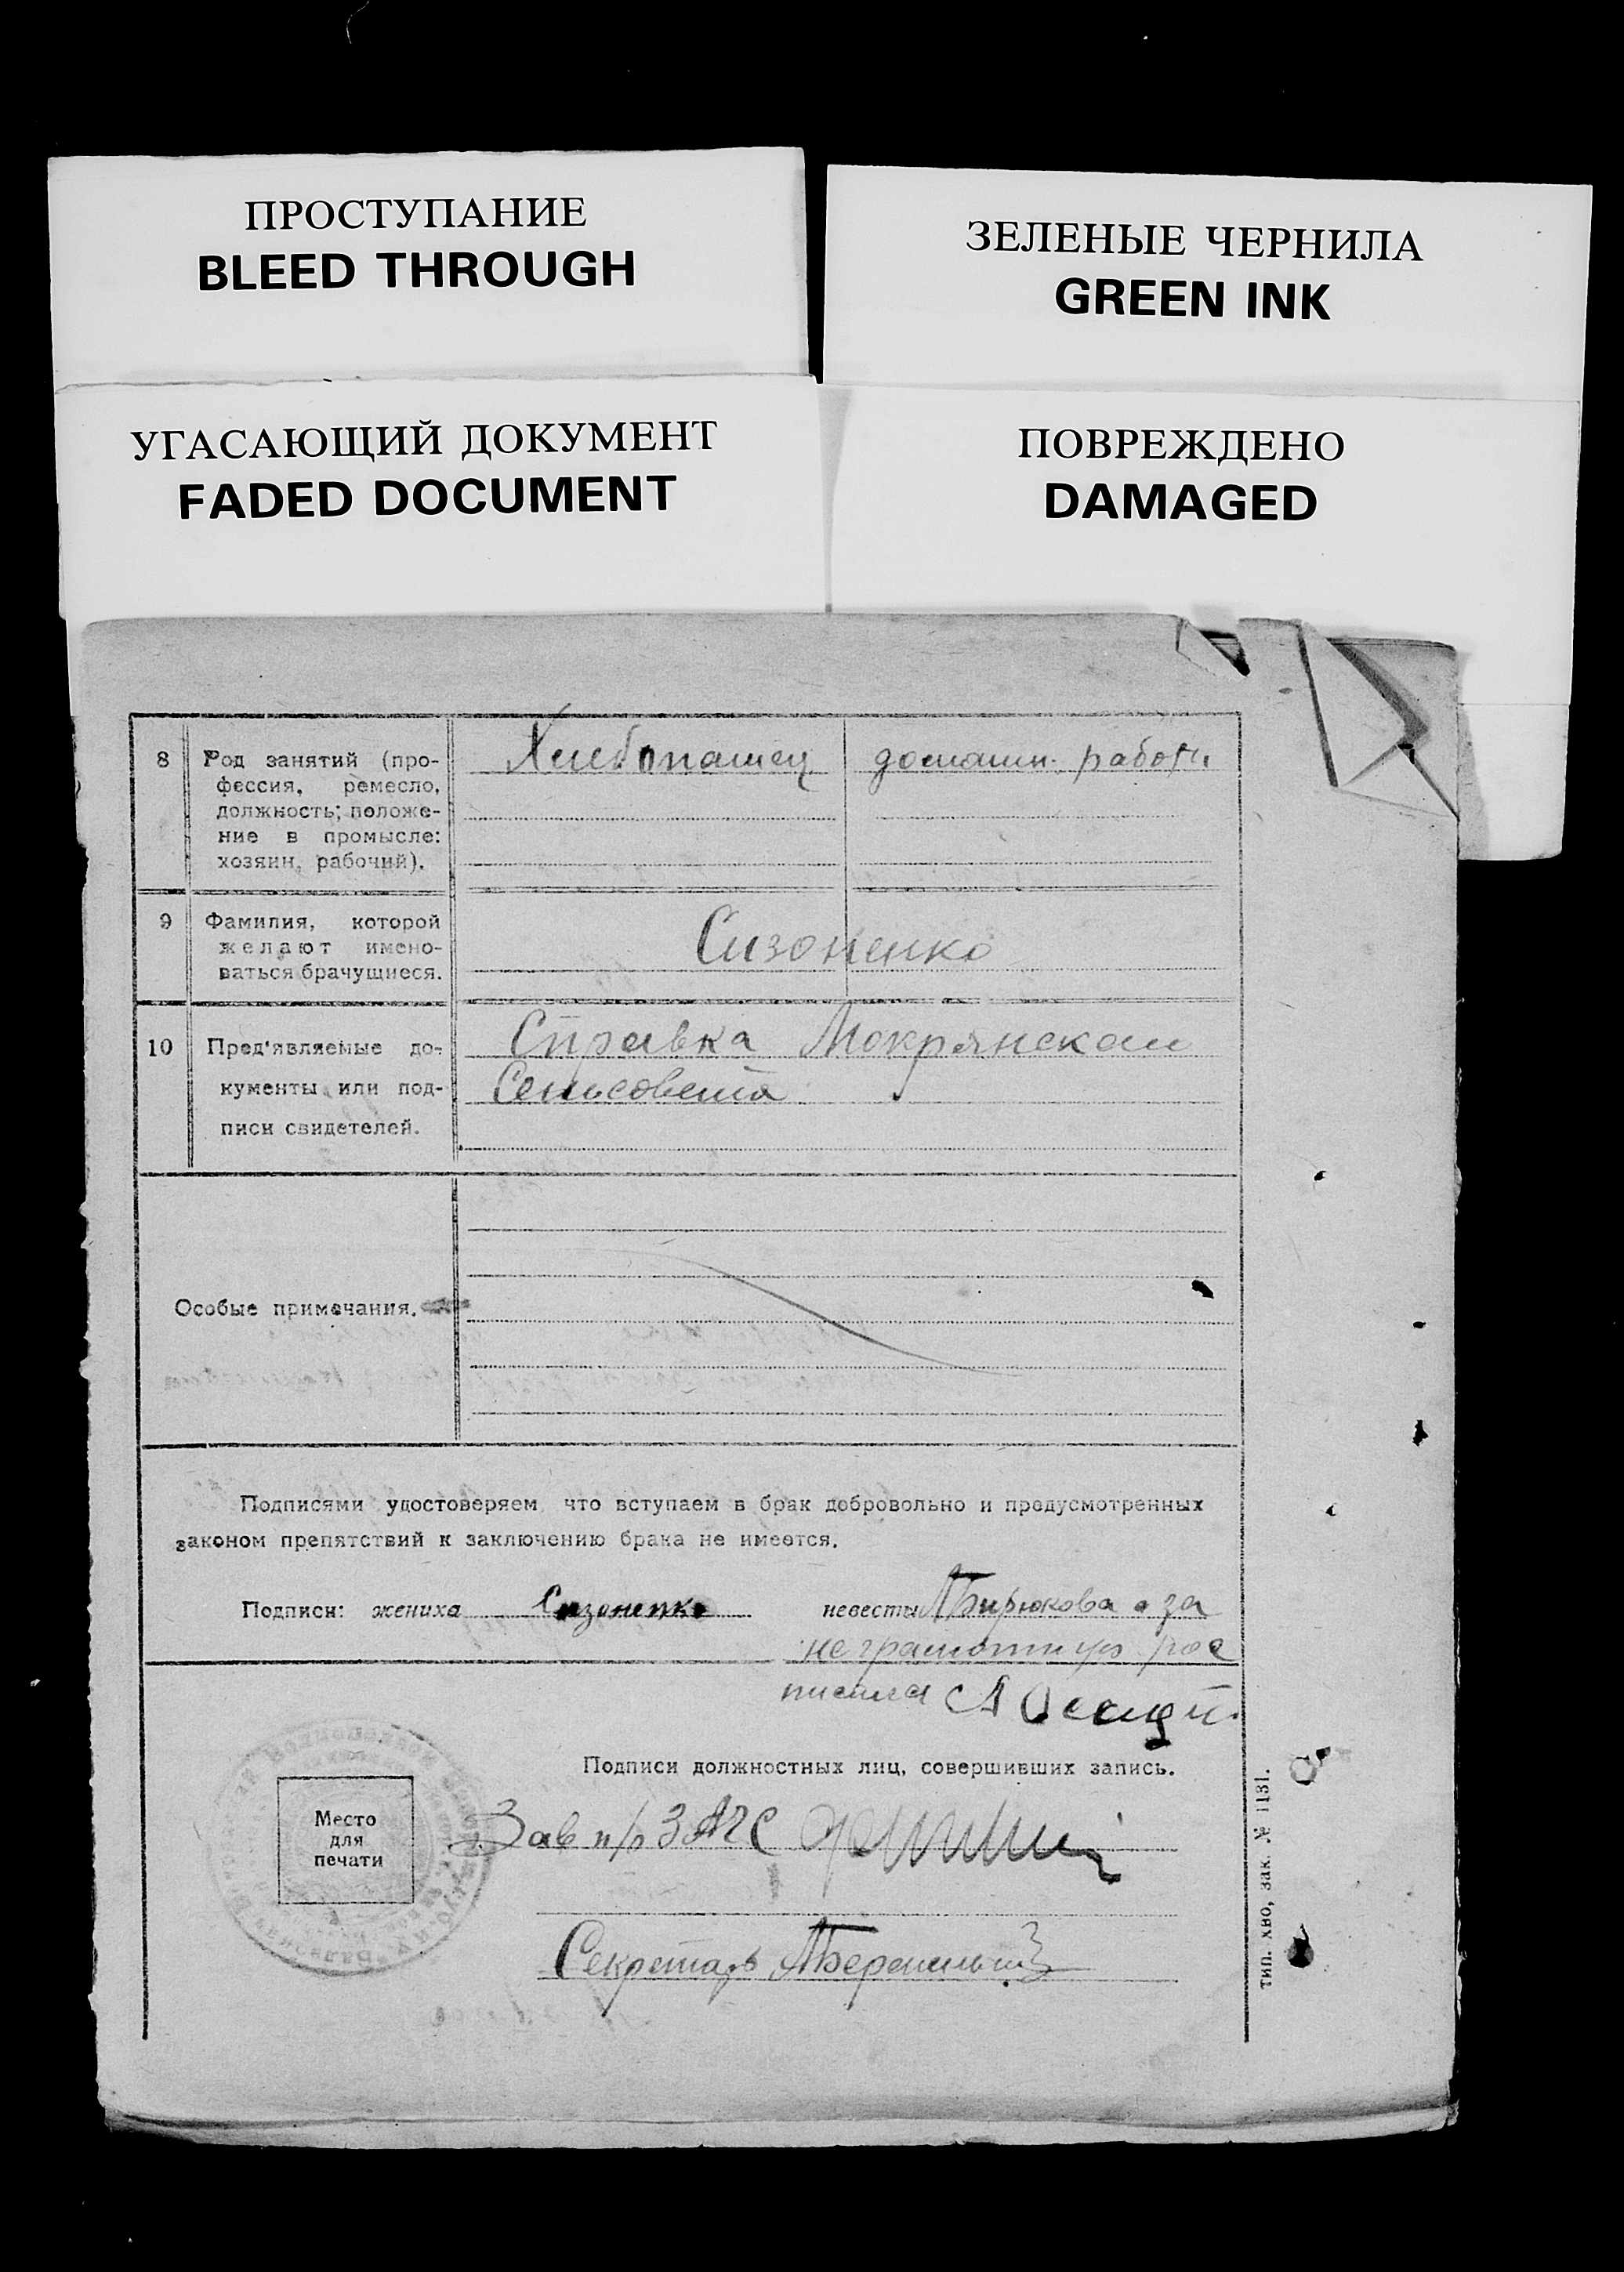 ПРОСТУПАНИЕ
BLEED THROUGH
ЗЕЛЕНЫЕ ЧЕРНИЛА
GREEN INK
УГАСАЮЩИЙ ДОКУМЕНТ
FADED DOCUMENT
ПОВРЕЖДЕНО
DAMAGED
8 Род занятий (про-
фессия, ремесло,
должность; положе-
ние в промысле:
хозяин, рабочий).
Хлебопашец
домашн. работы
9 Фамилия, которой
желают имено-
ваться брачущиеся.
Сизоненко
10 Пред'являемые до-
кументы или под-
писи свидетелей.
Справка Мокрянскаи
Сельсовета
Особые примечания.
Подписями удостоверяем, что вступаем в брак добровольно и предусмотренных
законом препятствий к заключению брака не имеется.
Подписи: жениха Сизоненко
невесты Бирюкова а за
неграмотную рос
писался
Подписи должностных лиц, совершивших запись.
Место
для
печати
Зав п/о ЗАГС
Секретарь
тип. хво, зак. № 1131.